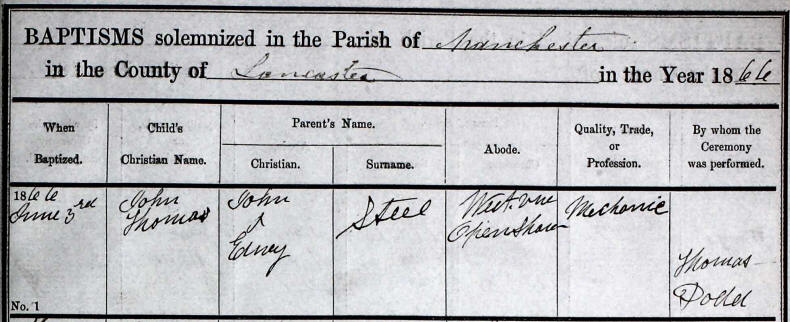 BAPTISMS solemnized in the Parish of Manchester
in the County of Lancaster in the Year 1866
When Baptized.
Child's Christian Name.
Parent's Name.
Christian.
Surname.
Abode.
Quality, Trade, or Profession.
By whom the Ceremony was performed.
1866
June 3rd
No. 1
John
Thomas
John
&
Steel
Openshaw
Mechanic
Thomas
Dodd